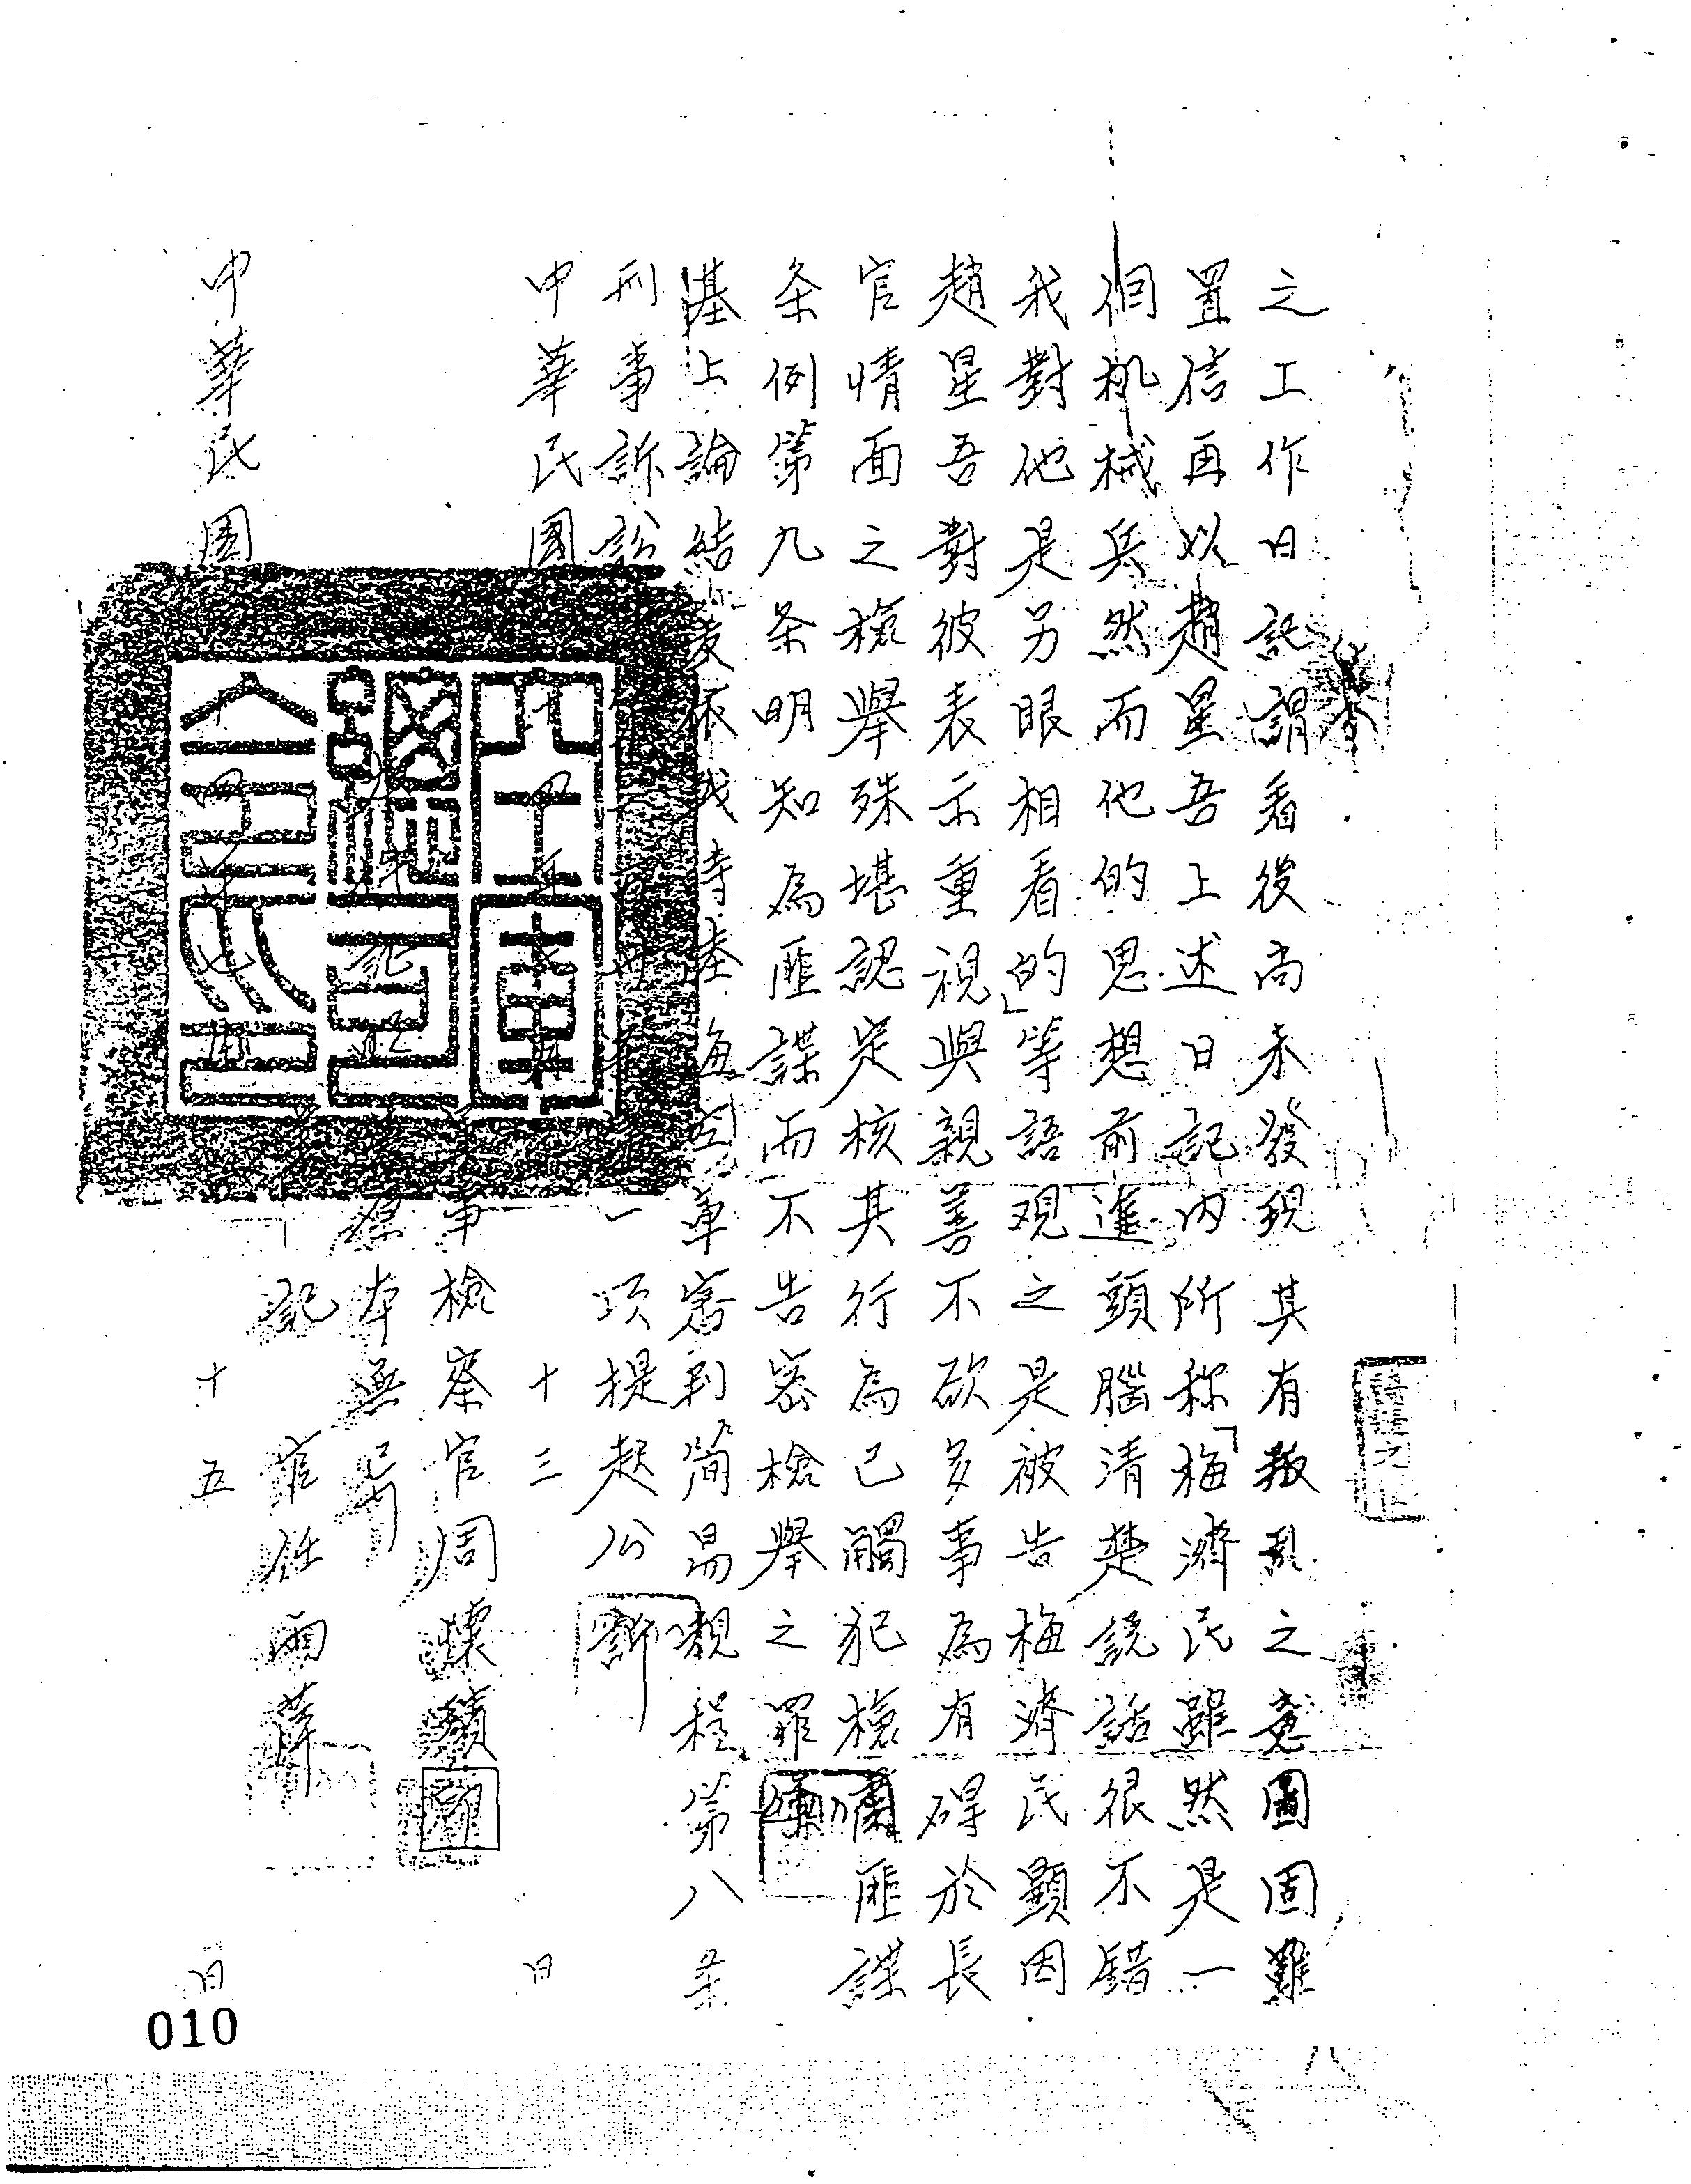 之工作日記謂看後尚未發現其有叛乱之意圖固難
置信再以趙星吾上述日記內所称「梅濟民雖然是一
個机械兵然而他的思想前進頭腦清楚說話很不錯
我對他是另眼相看的」等語观之是被告梅濟民顯因
趙星吾對彼表示重視與親善不欲多事為有碍於長
官情面之檢舉殊堪認定核其行為已觸犯檢肅匪諜
条例第九条明知為匪諜而不告密檢舉之罪嫌
基上論結爰依戰時陸海空軍審判簡易規程第八条
刑事訴訟 一項提起公訴
中華民國 十三 日
檢察官周
本無異
記官任雨
中華民國 十五 日
010